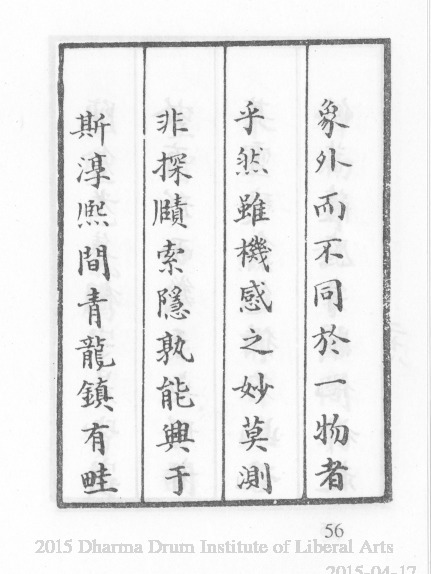 象外而不同於一物者
乎然雖機感之妙莫測
非探賾索隱孰能興于
斯淳熙間青龍鎮有畦
56
2015 Dharma Drum Institute of Liberal Arts
2015-04-17